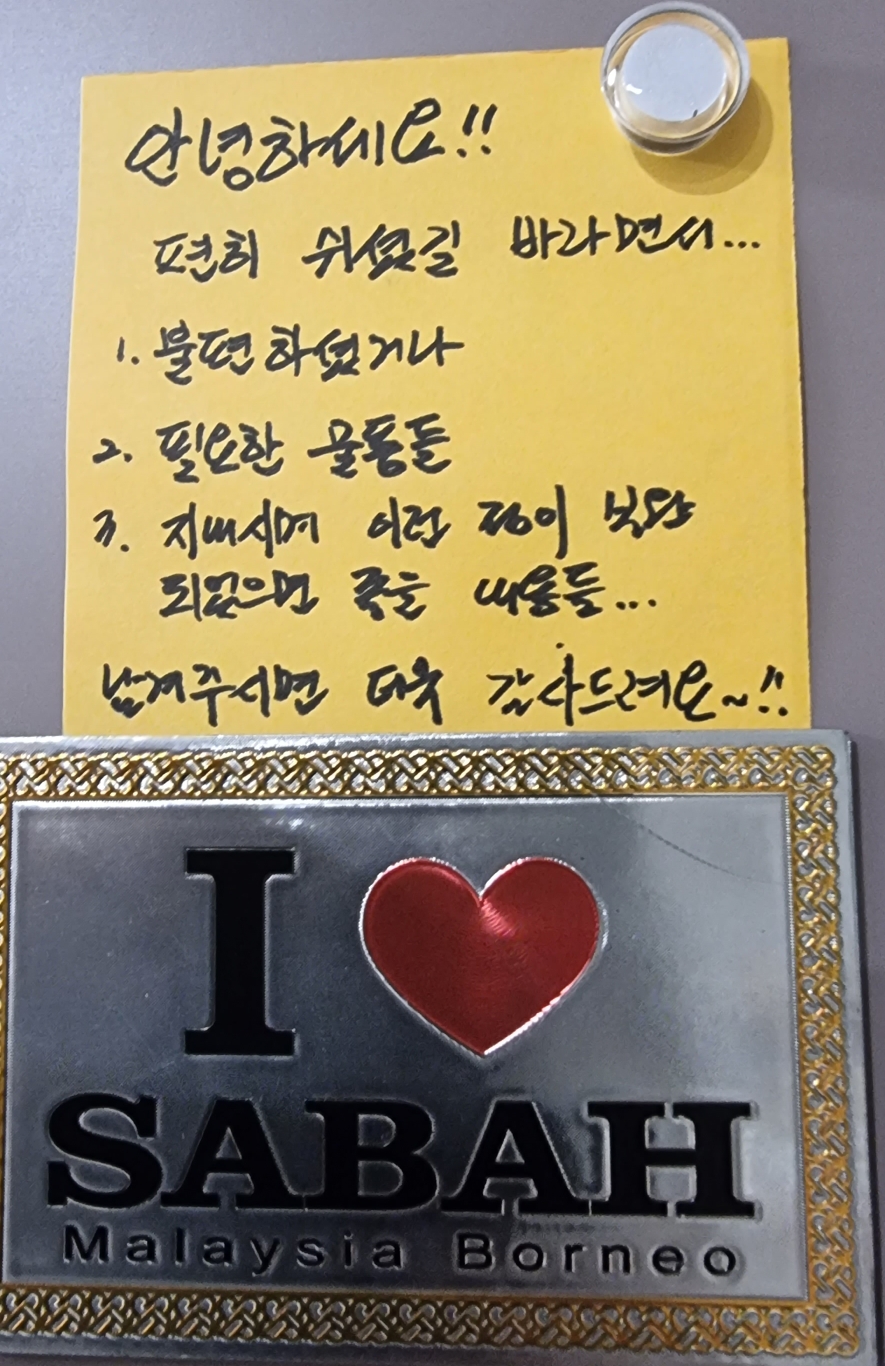 안녕하세요!!
편히 쉬셨길 바라면서...
1. 불편하셨거나
2. 필요한 물품들
3. 지내시며 이런 점이 보완
되었으면 좋을 내용들...
남겨주시면 더욱 감사드려요~!!
I
SABAH
Malaysia Borneo